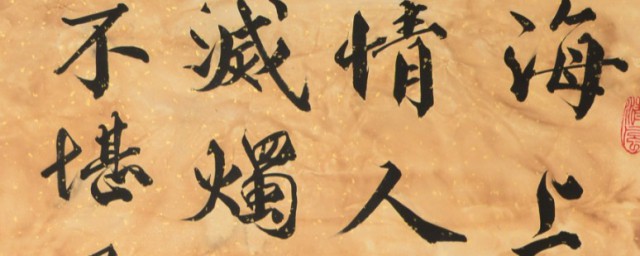 海上
情人
滅燭
不堪